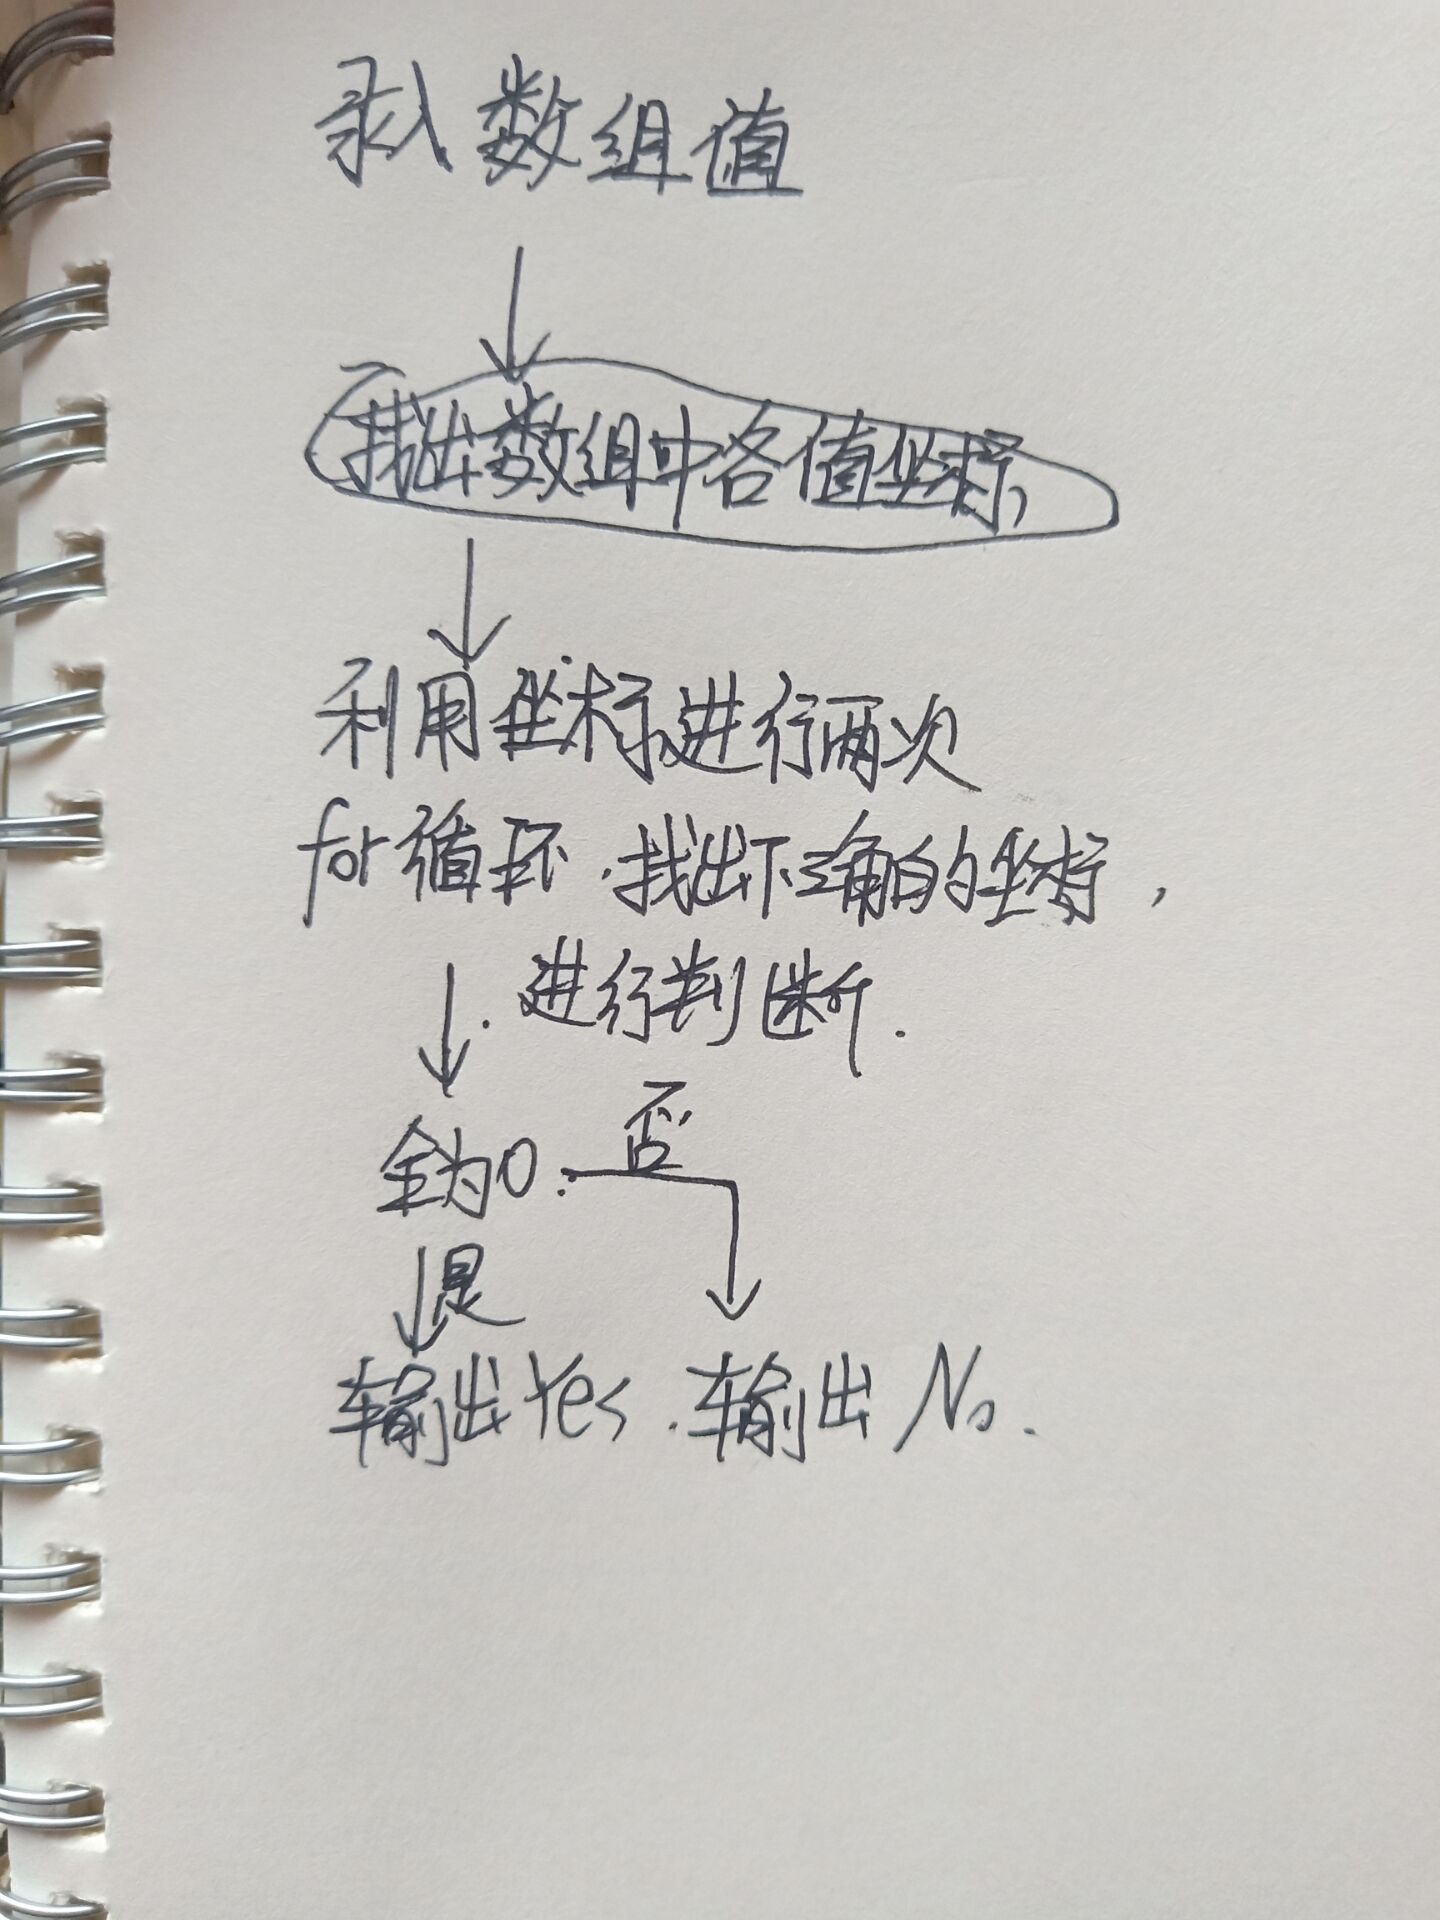 录入数组值
找出数组中各值坐标,
利用坐标进行两次
for循环.找出下三角的坐标,
进行判断.
全为0. 否
是
输出Yes. 输出No.